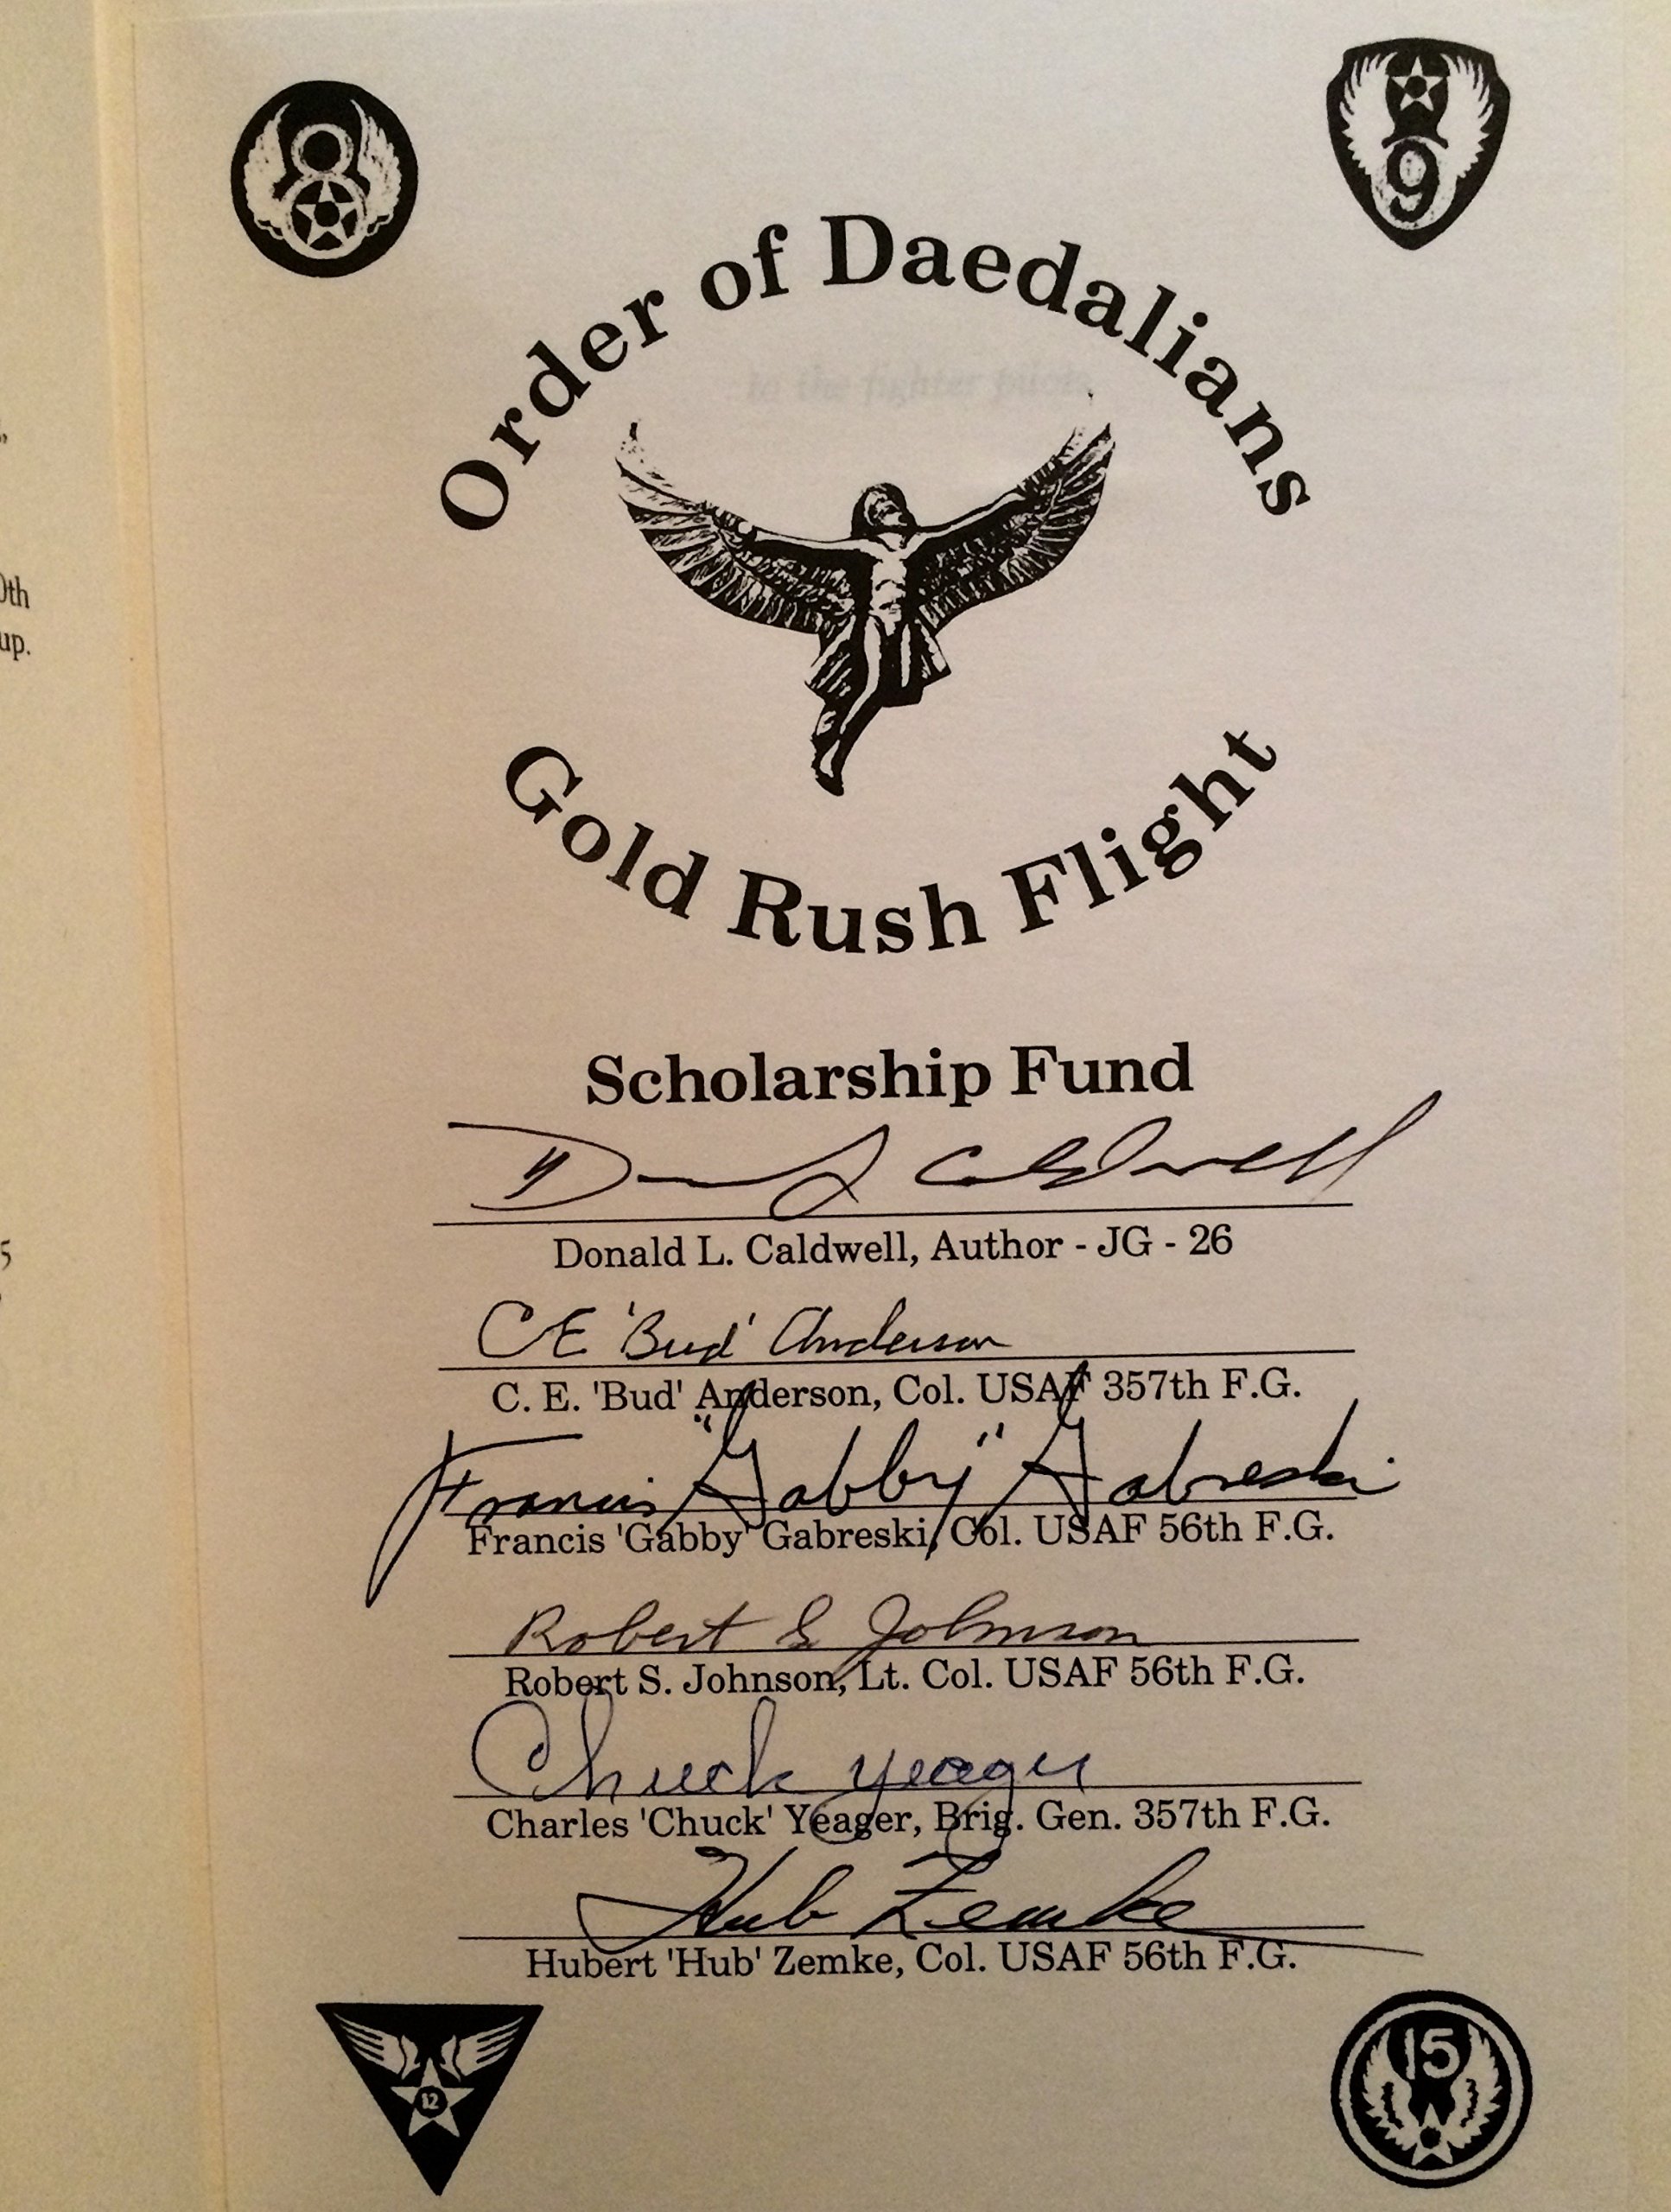 8
9
Order of Daedalians
to the fighter pilots
Gold Rush Flight
Scholarship Fund
Donald Caldwell
Donald L. Caldwell, Author - JG - 26
CE 'Bud' Anderson
C. E. 'Bud' Anderson, Col. USAF 357th F.G.
Francis "Gabby" Gabreski
Francis 'Gabby' Gabreski, Col. USAF 56th F.G.
Robert S Johnson
Robert S. Johnson, Lt. Col. USAF 56th F.G.
Chuck Yeager
Charles 'Chuck' Yeager, Brig. Gen. 357th F.G.
Hub Zemke
Hubert 'Hub' Zemke, Col. USAF 56th F.G.
12
15
up.
5